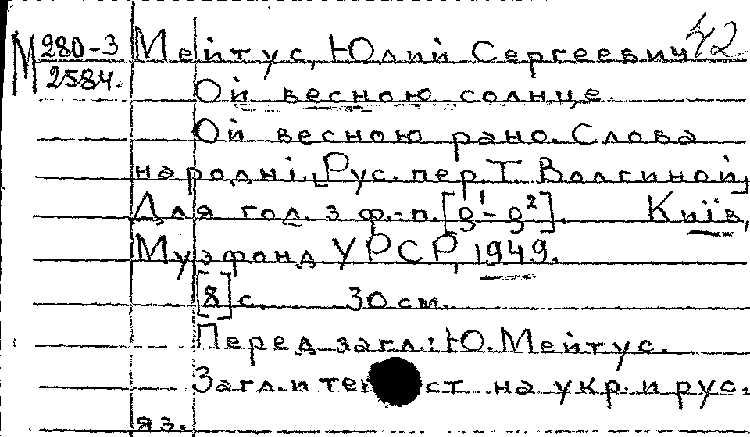 М 280-3 Мейтус, Юлий Сергеевич 42
2584.
Ой весною солнце.
Ой весною рано. Слова
народні. [Рус. пер. Т. Волгиной]
Для гол. з ф.-п. [g¹-g²]. Київ,
Музфонд УРСР, 1949.
[8] с. 30 см.
Перед загл.: Ю. Мейтус.
Загл. и текст на укр. и рус.
яз.